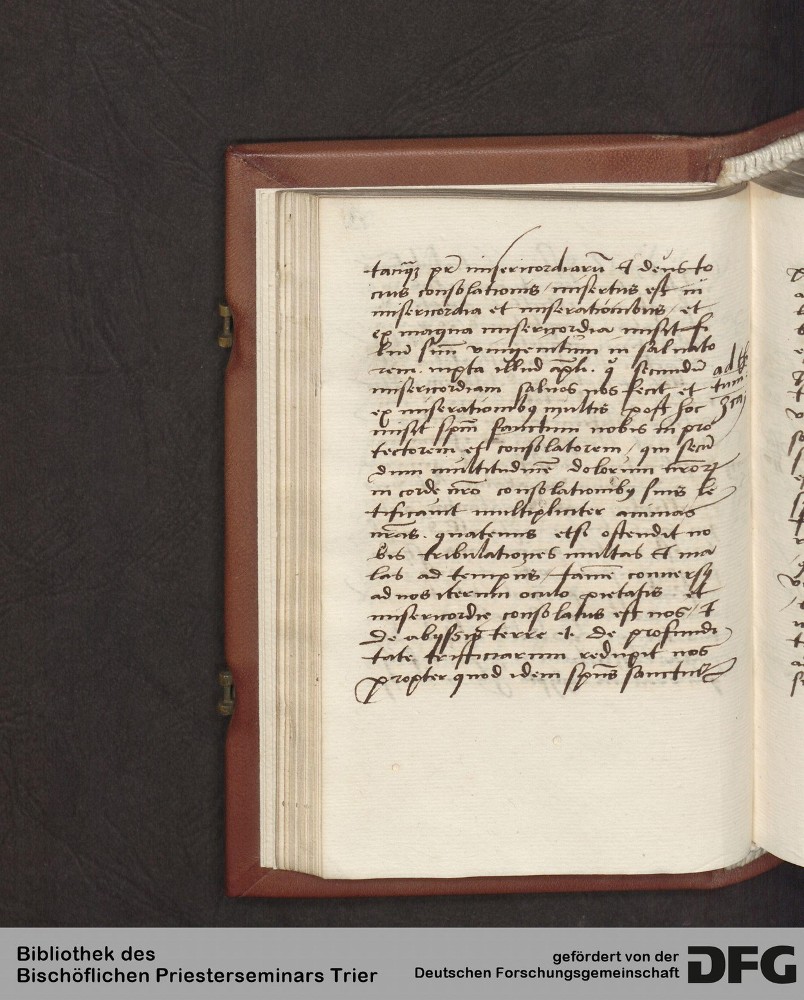 tanq̃ʒ pr̃ misericordiarũ et deus to
cius consolationis / misertus est in
misericordia et miserationibus / et
ex magna misericordia misit fi
lium suũ vnigenitum in saluato
rem . iuxta illud apl̃i . q̃ secundũ
ad
tum
misericordiam saluos nos fecit et
ex miserationibꝫ multis post hoc
misit spm̃ sanctum nobis in pro
tectorem et consolatorem / qui secũ
dum multitudinẽ dolorum nr̃orꝫ
in corde nr̃o consolationibꝫ suis le
tificauit multipliciter animas
nr̃as . quatenus etsi ostendit no
bis tribulationes multas et ma
las ad tempus / tamẽ conuersꝫ
ad nos iterum oculo pietatis et
misericordie consolatus est nos / et
de abyssis terre et de profundi
tate tristiciarum reduxit nos
propter quod idem spũs sanctus
Bibliothek des
Bischöflichen Priesterseminars Trier
gefördert von der
Deutschen Forschungsgemeinschaft
DFG